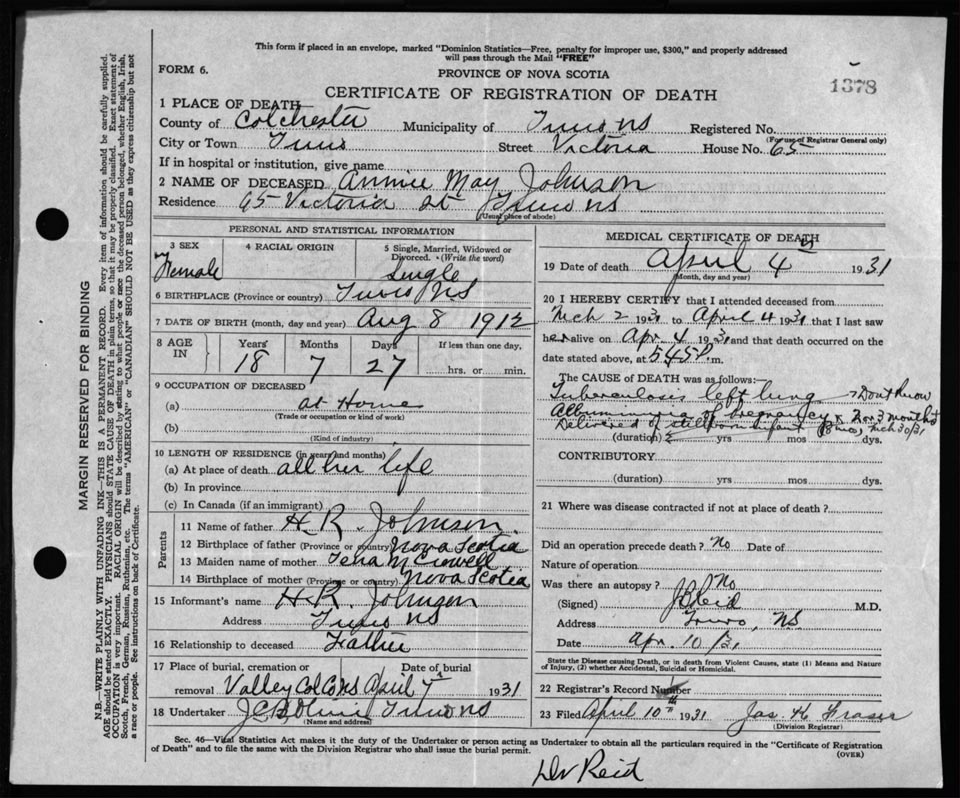 This form if placed in an envelope, marked "Dominion Statistics—Free, penalty for improper use, $300," and properly addressed
will pass through the Mail "FREE"
FORM 6.
PROVINCE OF NOVA SCOTIA
1378
CERTIFICATE OF REGISTRATION OF DEATH
1 PLACE OF DEATH
County of Colchester Municipality of Truro NS Registered No.
(For use of Registrar General only)
City or Town Truro Street Victoria House No. 65
If in hospital or institution, give name
2 NAME OF DECEASED Annie May Johnson
Residence 65 Victoria st Truro NS
(Usual place of abode)
PERSONAL AND STATISTICAL INFORMATION
3 SEX 4 RACIAL ORIGIN 5 Single, Married, Widowed or Divorced. (Write the word)
Female Single
6 BIRTHPLACE (Province or country) Truro NS
7 DATE OF BIRTH (month, day and year) Aug 8 1912
8 AGE IN Years Months Days If less than one day,
18 7 27 hrs. or min.
9 OCCUPATION OF DECEASED
(a) at Home
(Trade or occupation or kind of work)
(b)
(Kind of industry)
10 LENGTH OF RESIDENCE (in years and months)
(a) At place of death all her life
(b) In province
(c) In Canada (if an immigrant)
Parents
11 Name of father H. R. Johnson
12 Birthplace of father (Province or country) Nova Scotia
13 Maiden name of mother
14 Birthplace of mother (Province or country) Nova Scotia
15 Informant's name H. R. Johnson
Address Truro NS
16 Relationship to deceased Father
17 Place of burial, cremation or removal Date of burial
Valley Col Co NS April 7 1931
18 Undertaker Truro NS
(Name and address)
MEDICAL CERTIFICATE OF DEATH
19 Date of death April 4th 1931
(Month, day and year)
20 I HEREBY CERTIFY that I attended deceased from
Mch 2 1931 to April 4 1931 that I last saw
her alive on Apr. 4 1931 and that death occurred on the
date stated above, at 5.45 P. m.
The CAUSE OF DEATH was as follows:
Tuberculosis left lung Don't know
Albuminuria of pregnancy 2 or 3 months
Delivered of stillborn infant (8 mos) Mch 30/31
(duration) yrs mos dys.
CONTRIBUTORY
(duration) yrs mos dys.
21 Where was disease contracted if not at place of death?
Did an operation precede death? No Date of
Nature of operation
Was there an autopsy? No
(Signed) Reid M.D.
Address Truro, N.S.
Date Apr. 10/31
State the Disease causing Death, or in death from Violent Causes, state (1) Means and Nature
of Injury, (2) whether Accidental, Suicidal or Homicidal.
22 Registrar's Record Number
23 Filed April 10th 1931 Jas. K. Fraser
(Division Registrar)
Sec. 46—Vital Statistics Act makes it the duty of the Undertaker or person acting as Undertaker to obtain all the particulars required in the "Certificate of Registration
of Death" and to file the same with the Division Registrar who shall issue the burial permit.
(OVER)
Dr Reid
MARGIN RESERVED FOR BINDING
N.B.—WRITE PLAINLY WITH UNFADING INK—THIS IS A PERMANENT RECORD. Every item of information should be carefully supplied.
AGE should be stated EXACTLY. PHYSICIANS should STATE CAUSE OF DEATH in plain terms, so that it may be properly classified. Exact statement of
OCCUPATION is very important. RACIAL ORIGIN will be described by stating to what people or race the deceased person belonged, whether English, Irish,
Scotch, French, German, Russian, Ruthenian, etc. The terms "AMERICAN" or "CANADIAN" SHOULD NOT BE USED as they express citizenship but not
a race or people. See instructions on back of Certificate.